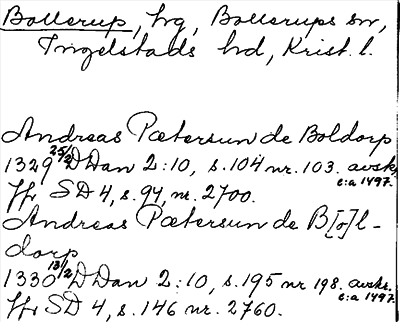 Bollerup, hg, Bollerups sn,
Ingelstads hd, Krist. l.
Andreas Pætersun de Boldorp
1329 25/2 DDan 2:10, s. 104 nr. 103. avskr.
c:a 1497.
Jfr SD 4, s. 94, nr. 2700.
Andreas Pætersun de B[o]l-
dorp
1330 13/2 DDan 2:10, s. 195 nr 198. avskr.
c:a 1497.
Jfr SD 4, s. 146 nr. 2760.